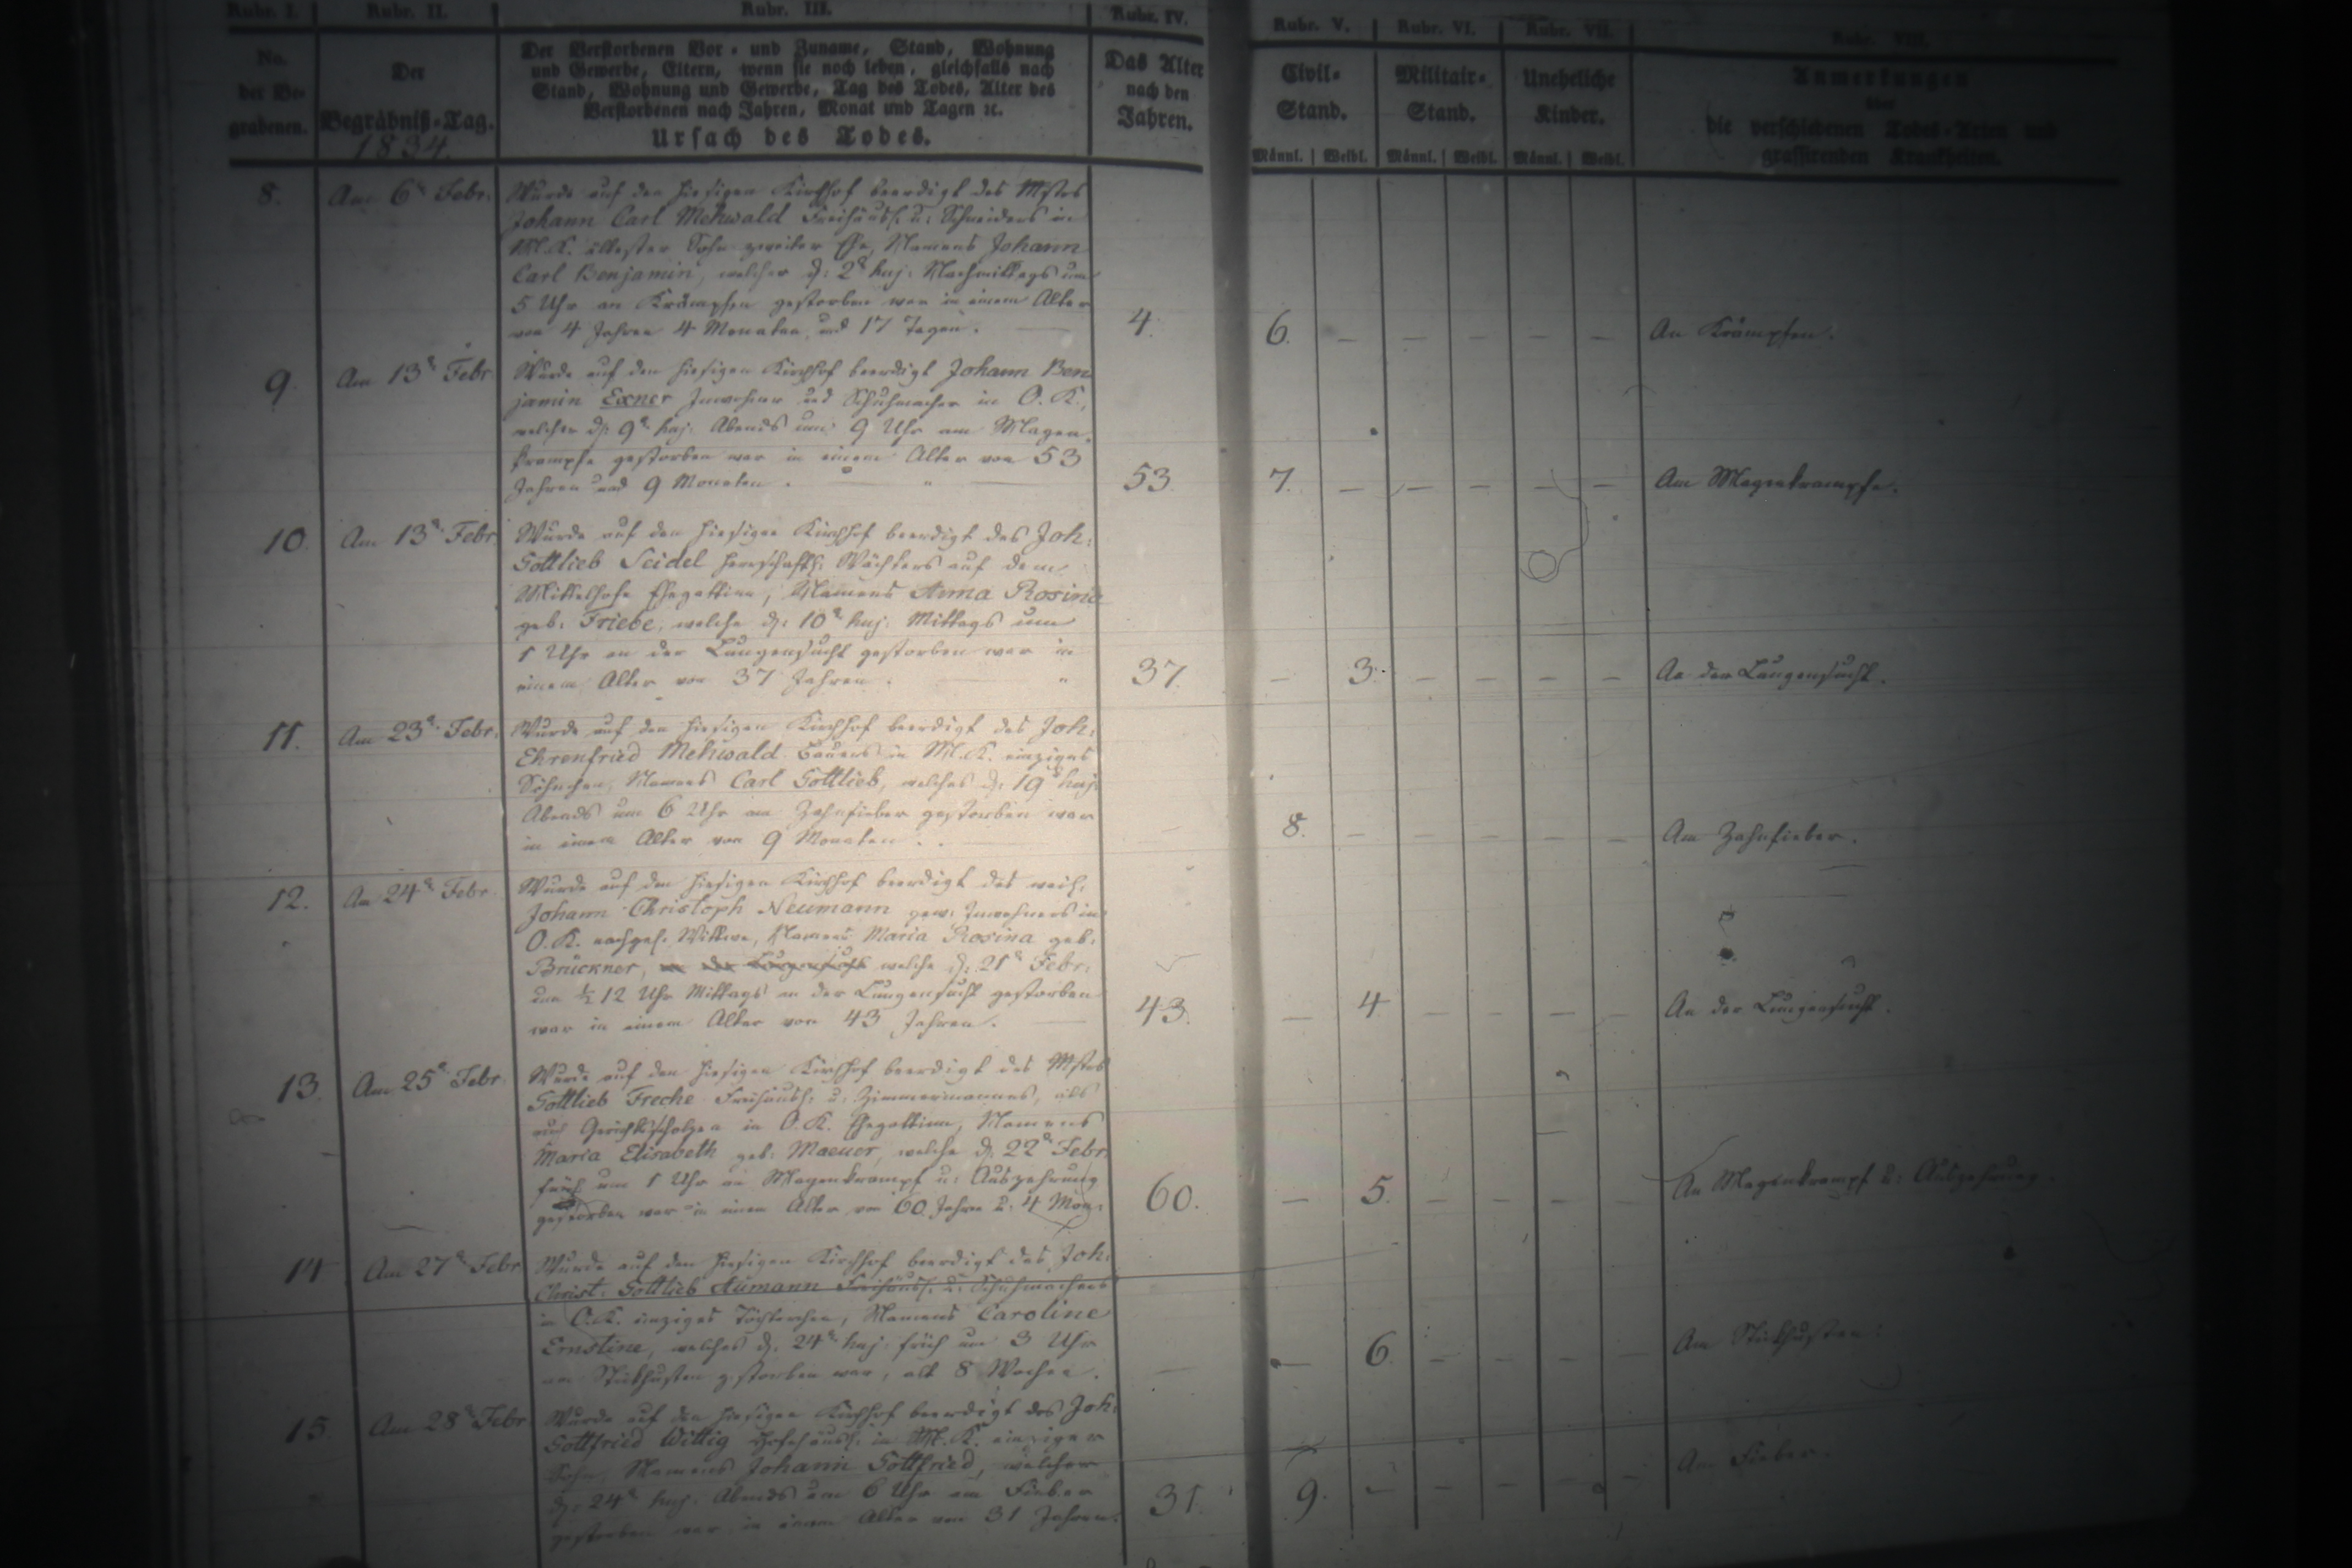 Rubr. I. Rubr. II. Rubr. III. Rubr. IV. Rubr. V. Rubr. VI. Rubr. VII. Rubr. VIII.
No.
der Be-
grabenen.
Der
Begräbniß-Tag.
1834.
Der Verstorbenen Vor- und Zuname, Stand, Wohnung
und Gewerbe, Eltern, wenn sie noch leben, gleichfalls nach
Stand, Wohnung und Gewerbe, Tag des Todes, Alter des
Verstorbenen nach Jahren, Monat und Tagen ꝛc.
Ursach des Todes.
Das Alter
nach den
Jahren.
Civil-
Stand.
Männl. | Weibl.
Militair-
Stand.
Männl. | Weibl.
Uneheliche
Kinder.
Männl. | Weibl.
Anmerkungen
über
die verschiedenen Todes-Arten und
grassirenden Krankheiten.
8. Am 6ten Febr.
Wurde auf den hiesigen Kirchhof beerdigt des Mstrs
Johann Carl Mehwald Freihäusl. u: Schneiders in
M.K. ältester Sohn zweiter Ehe, Namens Johann
Carl Benjamin, welcher d: 2t huj: Nachmittags um
5 Uhr an Krämpfen gestorben war in einem Alter
von 4 Jahren 4 Monaten und 17 Tagen.
4. 6. – – – – – An Krämpfen.
9. Am 13t Febr.
Wurde auf den hiesigen Kirchhof beerdigt Johann Ben
jamin Exner Inwohner und Schuhmacher in O.K.,
welcher d: 9t huj: Abends um 9 Uhr am Magen-
krampfe gestorben war in einem Alter von 53
Jahren und 9 Monaten.
53. 7. – – – – – Am Magenkrampfe.
10. Am 13t Febr.
Wurde auf den hiesigen Kirchhof beerdigt des Joh:
Gottlieb Seidel herrschaftl: Wächters auf dem
Mittelhofe Ehegattinn, Namens Anna Rosina
geb: Friebe, welche d: 10t huj: Mittags um
1 Uhr an der Lungensucht gestorben war in
einem Alter von 37 Jahren.
37. – 3. – – – – An der Lungensucht.
11. Am 23t Febr.
Wurde auf den hiesigen Kirchhof beerdigt des Joh:
Ehrenfried Mehwald Bauers in M.K. einziges
Söhnchen, Namens Carl Gottlieb, welches d: 19t huj:
Abends um 6 Uhr am Zahnfieber gestorben war
in einem Alter von 9 Monaten.
8. – – – – – Am Zahnfieber.
12. Am 24t Febr.
Wurde auf den hiesigen Kirchhof beerdigt des weil:
Johann Christoph Neumann gew: Inwohners in
O.K. nachgel: Wittwe, Namens Maria Rosina geb:
Brückner, an der Lungensucht welche d: 21t Febr:
um ½ 12 Uhr Mittags an der Lungensucht gestorben
war in einem Alter von 43 Jahren.
43. – 4. – – – – An der Lungensucht.
13. Am 25t Febr.
Wurde auf den hiesigen Kirchhof beerdigt des Mstrs
Gottlieb Freche Freihäusl: u: Zimmermannes,
Gerichtsscholzen in O.K. Ehegattinn, Namens
Maria Elisabeth geb: Maeuer, welche d: 22t Febr:
früh um 1 Uhr an Magenkrampf u: Auszehrung
gestorben war in einem Alter von 60 Jahren u: 4 Mon:
60. – 5. – – – – An Magenkrampf u: Auszehrung.
14. Am 27t Febr.
Wurde auf den hiesigen Kirchhof beerdigt des Joh:
Christ: Gottlieb Aumann Freihäusl: u: Schuhmachers
in O.K. einziges Töchterchen, Namens Caroline
Ernstine, welches d: 24t huj: früh um 3 Uhr
am Stickhusten gestorben war, alt 8 Wochen.
– – 6. – – – – Am Stickhusten.
15. Am 28t Febr.
Wurde auf den hiesigen Kirchhof beerdigt des Joh:
Gottfried Wittig Hofehäusl: in M.K. einziger
Sohn, Namens Johann Gottfried, welcher
d: 24t huj: Abends um 6 Uhr am Fieber
gestorben war in einem Alter von 31 Jahren.
31. 9. – – – – – Am Fieber.